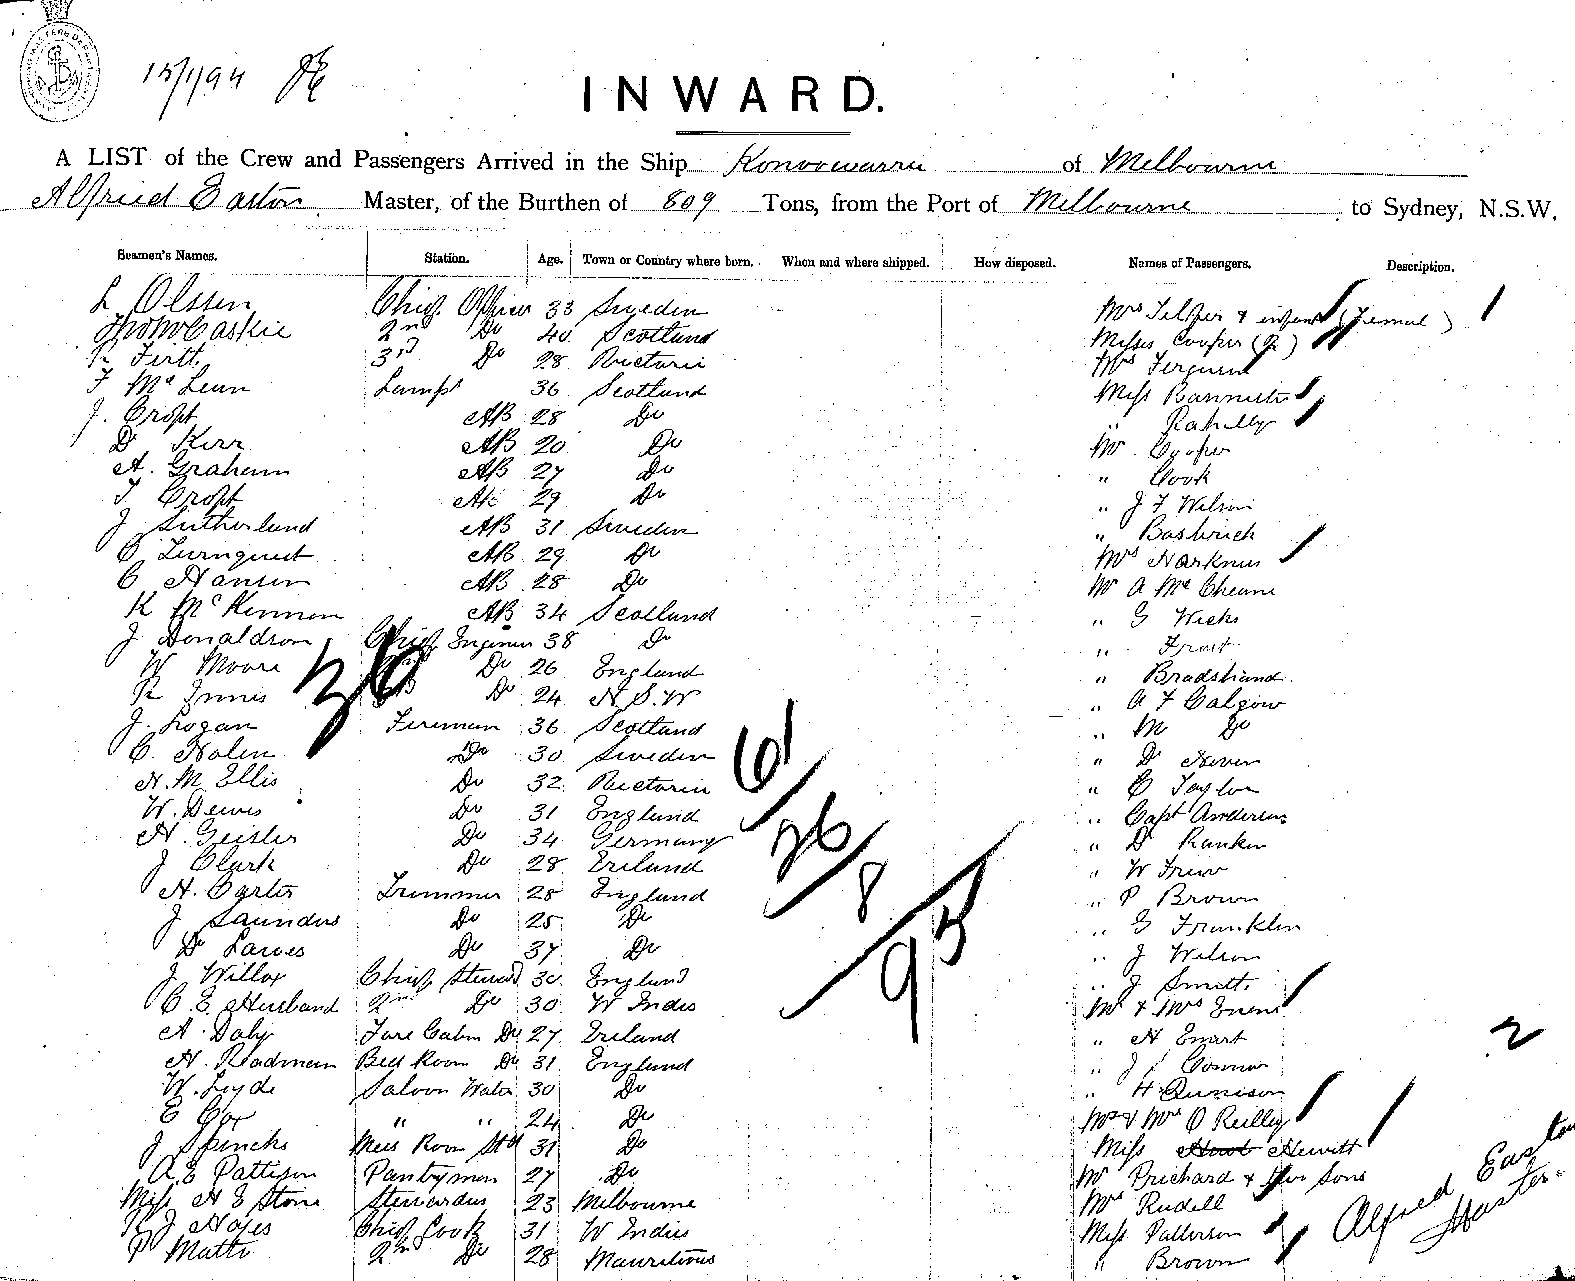 15/1/94
INWARD.
A LIST of the Crew and Passengers Arrived in the Ship Konoowarra of Melbourne
Alfried Easton Master, of the Burthen of 809 Tons, from the Port of Melbourne to Sydney, N.S.W.
Seamen's Names. Station. Age. Town or Country where born. When and where shipped. How disposed. Names of Passengers. Description.
L Olssen Chief Officer 33 Sweden Mrs Telfer & infant (Femal)
2nd Do 40 Scotland Misses Cooper (2)
R Firth 3rd Do 28 Victoria Mrs Ferguson
F McLean Lamps 36 Scotland Miss Bannister
J. Cropt AB 28 Do " Rahilly
D Kerr AB 20 Do Mr Cooper
A. Graham AB 27 Do " Cook
T Cropt AB 29 Do " J F Wilson
J Sutherland AB 31 Sweden " Bastwick
C Turnquist AB 29 Do Mrs Harknes
C Hansen AB 28 Do Mr A McCheane
K McKinnon AB 34 Scotland " G Wicks
J Donaldson Chief Engineer 38 Do " Frost
W Moore Do 26 England " Bradshand
R Innis Do 24 N.S.W " A F Calgow
J. Logan Fireman 36 Scotland " M Do
C. Nolen Do 30 Sweden " D Niven
H. M. Ellis Do 32 Victoria " C Taylor
W. Dewis Do 31 England " Capt Anderson
H. Geisler Do 34 Germany " D Rankin
J Clark Do 28 Ireland " W Frew
H. Carter Trimmer 28 England " P Brown
J Saunders Do 25 Do " G Franklin
D Lawes Do 37 Do " J Wilson
J Willox Chief Steward 30 England " J Smith
C. E. Husband 2nd Do 30 W Indis Mr & Mrs Evens
A. Daly Fore Cabin Do 27 Ireland " H Emart
H. Badman Bed Room Do 31 England " J Connor
W. Loyde Saloon Water 30 Do " H Dunison
E Cox " " 24 Do Mr & Mrs O Reilley
J Spinchs Mess Room Std 31 Do Miss Hewitt
A. E Pattison Pantryman 27 Do Mr Prichard & two Sons
Miss H E Stone Stewardus 23 Melbourne Mrs Rudell
R J Noyes Chief Cook 31 W Indies Miss Patterson
P Matte 2nd Do 28 Mauritious " Brown
26
61
26
8
95
2
Alfred Easton
Master.